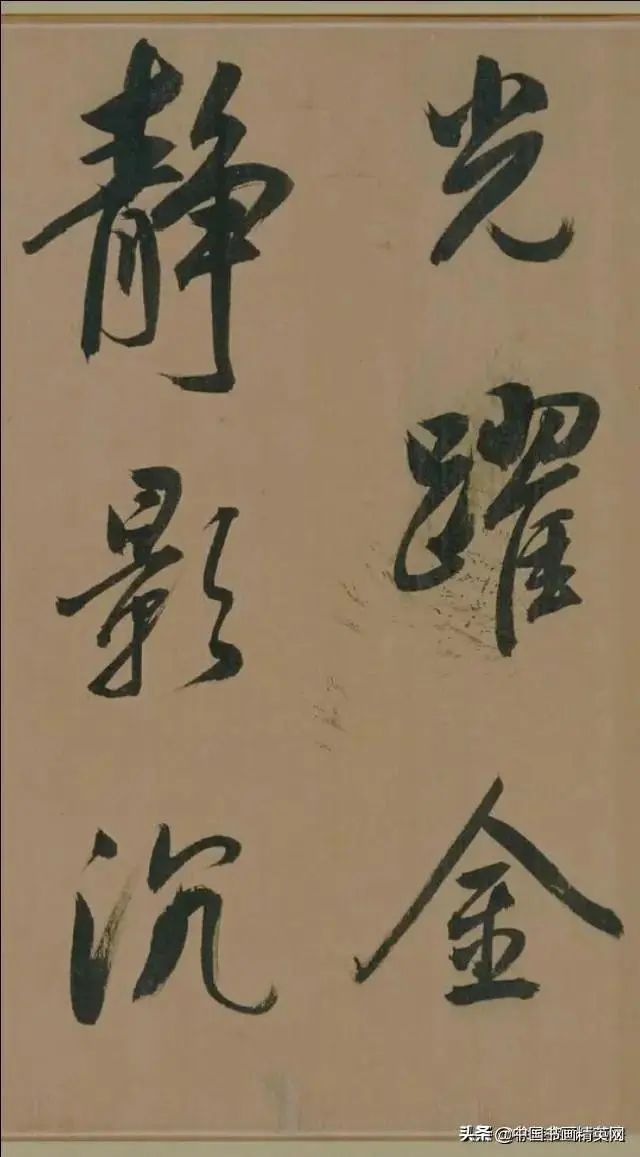 光躍金
靜影沉
头条 @中国书画精英网